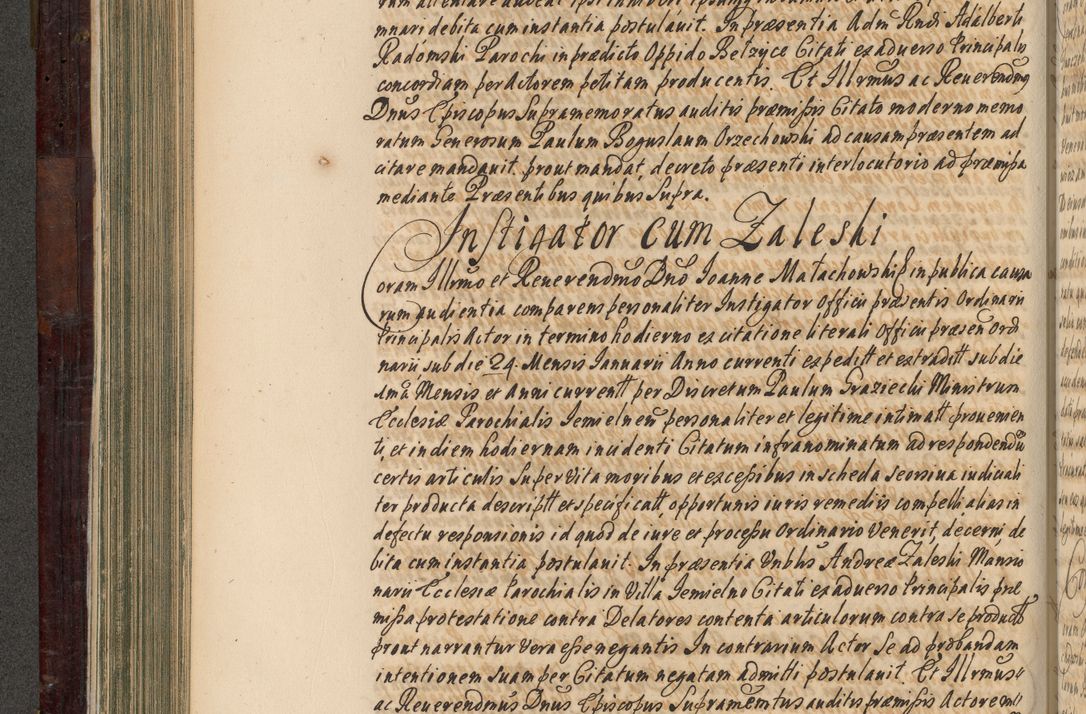 mnari debita cum instantia postulauit. In præsentia Adm Rndi Adalberti
Radomski Parochi in prædicto Oppido Belzyce Citati ex aduerso Principalis
concordiam per Actorem petitam producentis. Et Illrmus ac Reuerendmg
Dnus Episcopus Supramemoratus auditis præmißis Citato moderno memo
ratum Generosum Paulum Boguslaum Orzechowski ad causam præsentem ad
citare mandauit, prout mandat, decreto præsenti interlocutorio ad præmißa
mediante Præsentibus quibus Supra.
Instigator cum Zaleski
Coram Illrmo et Reuerendmo Dno Joanne Małachowski E in publica causa
rum audientia comparens personaliter Instigator Officii præsentis Ordinarii
Principalis Actor in termino hodierno ex citatione literali Officii præsen Ordi
narii sub die 24. Mensis Januarii Anno currenti expeditt et extraditt sub die
Ima Mensis et Anni currentt per Discretum Paulum Graziecki Ministrum
Ecclesiæ Parochialis Jemielnen personaliter et legitime intimatt prouenien
ti, et in diem hodiernam incidenti Citatum infranominatum ad respondendu
certis articulis Super Vita moribus et excessibus in scheda seorsiua iudiciali
ter producta descriptt et specificatt, opportunis iuris remediis compelli alias in
defectu responsionis id quod de iure et processu Ordinario Venerit, decerni de
bita cum instantia postulauit. In præsentia Vnblis Andreæ Zaleski Mansio
narii Ecclesiæ Parochialis in Villa Jemielno Citati ex aduerso Principalis præ
mißa protestatione contra Delatores contenta articulorum contra se productt
prout narrantur Vera eße negantis. In contrarium Actor Se ad probandam
intentionem suam per Citatum negatam admitti postulauit. Et Illrmus
ac Reuerendmus Dnus Episcopus Supramemtus auditis præmißis Actorem